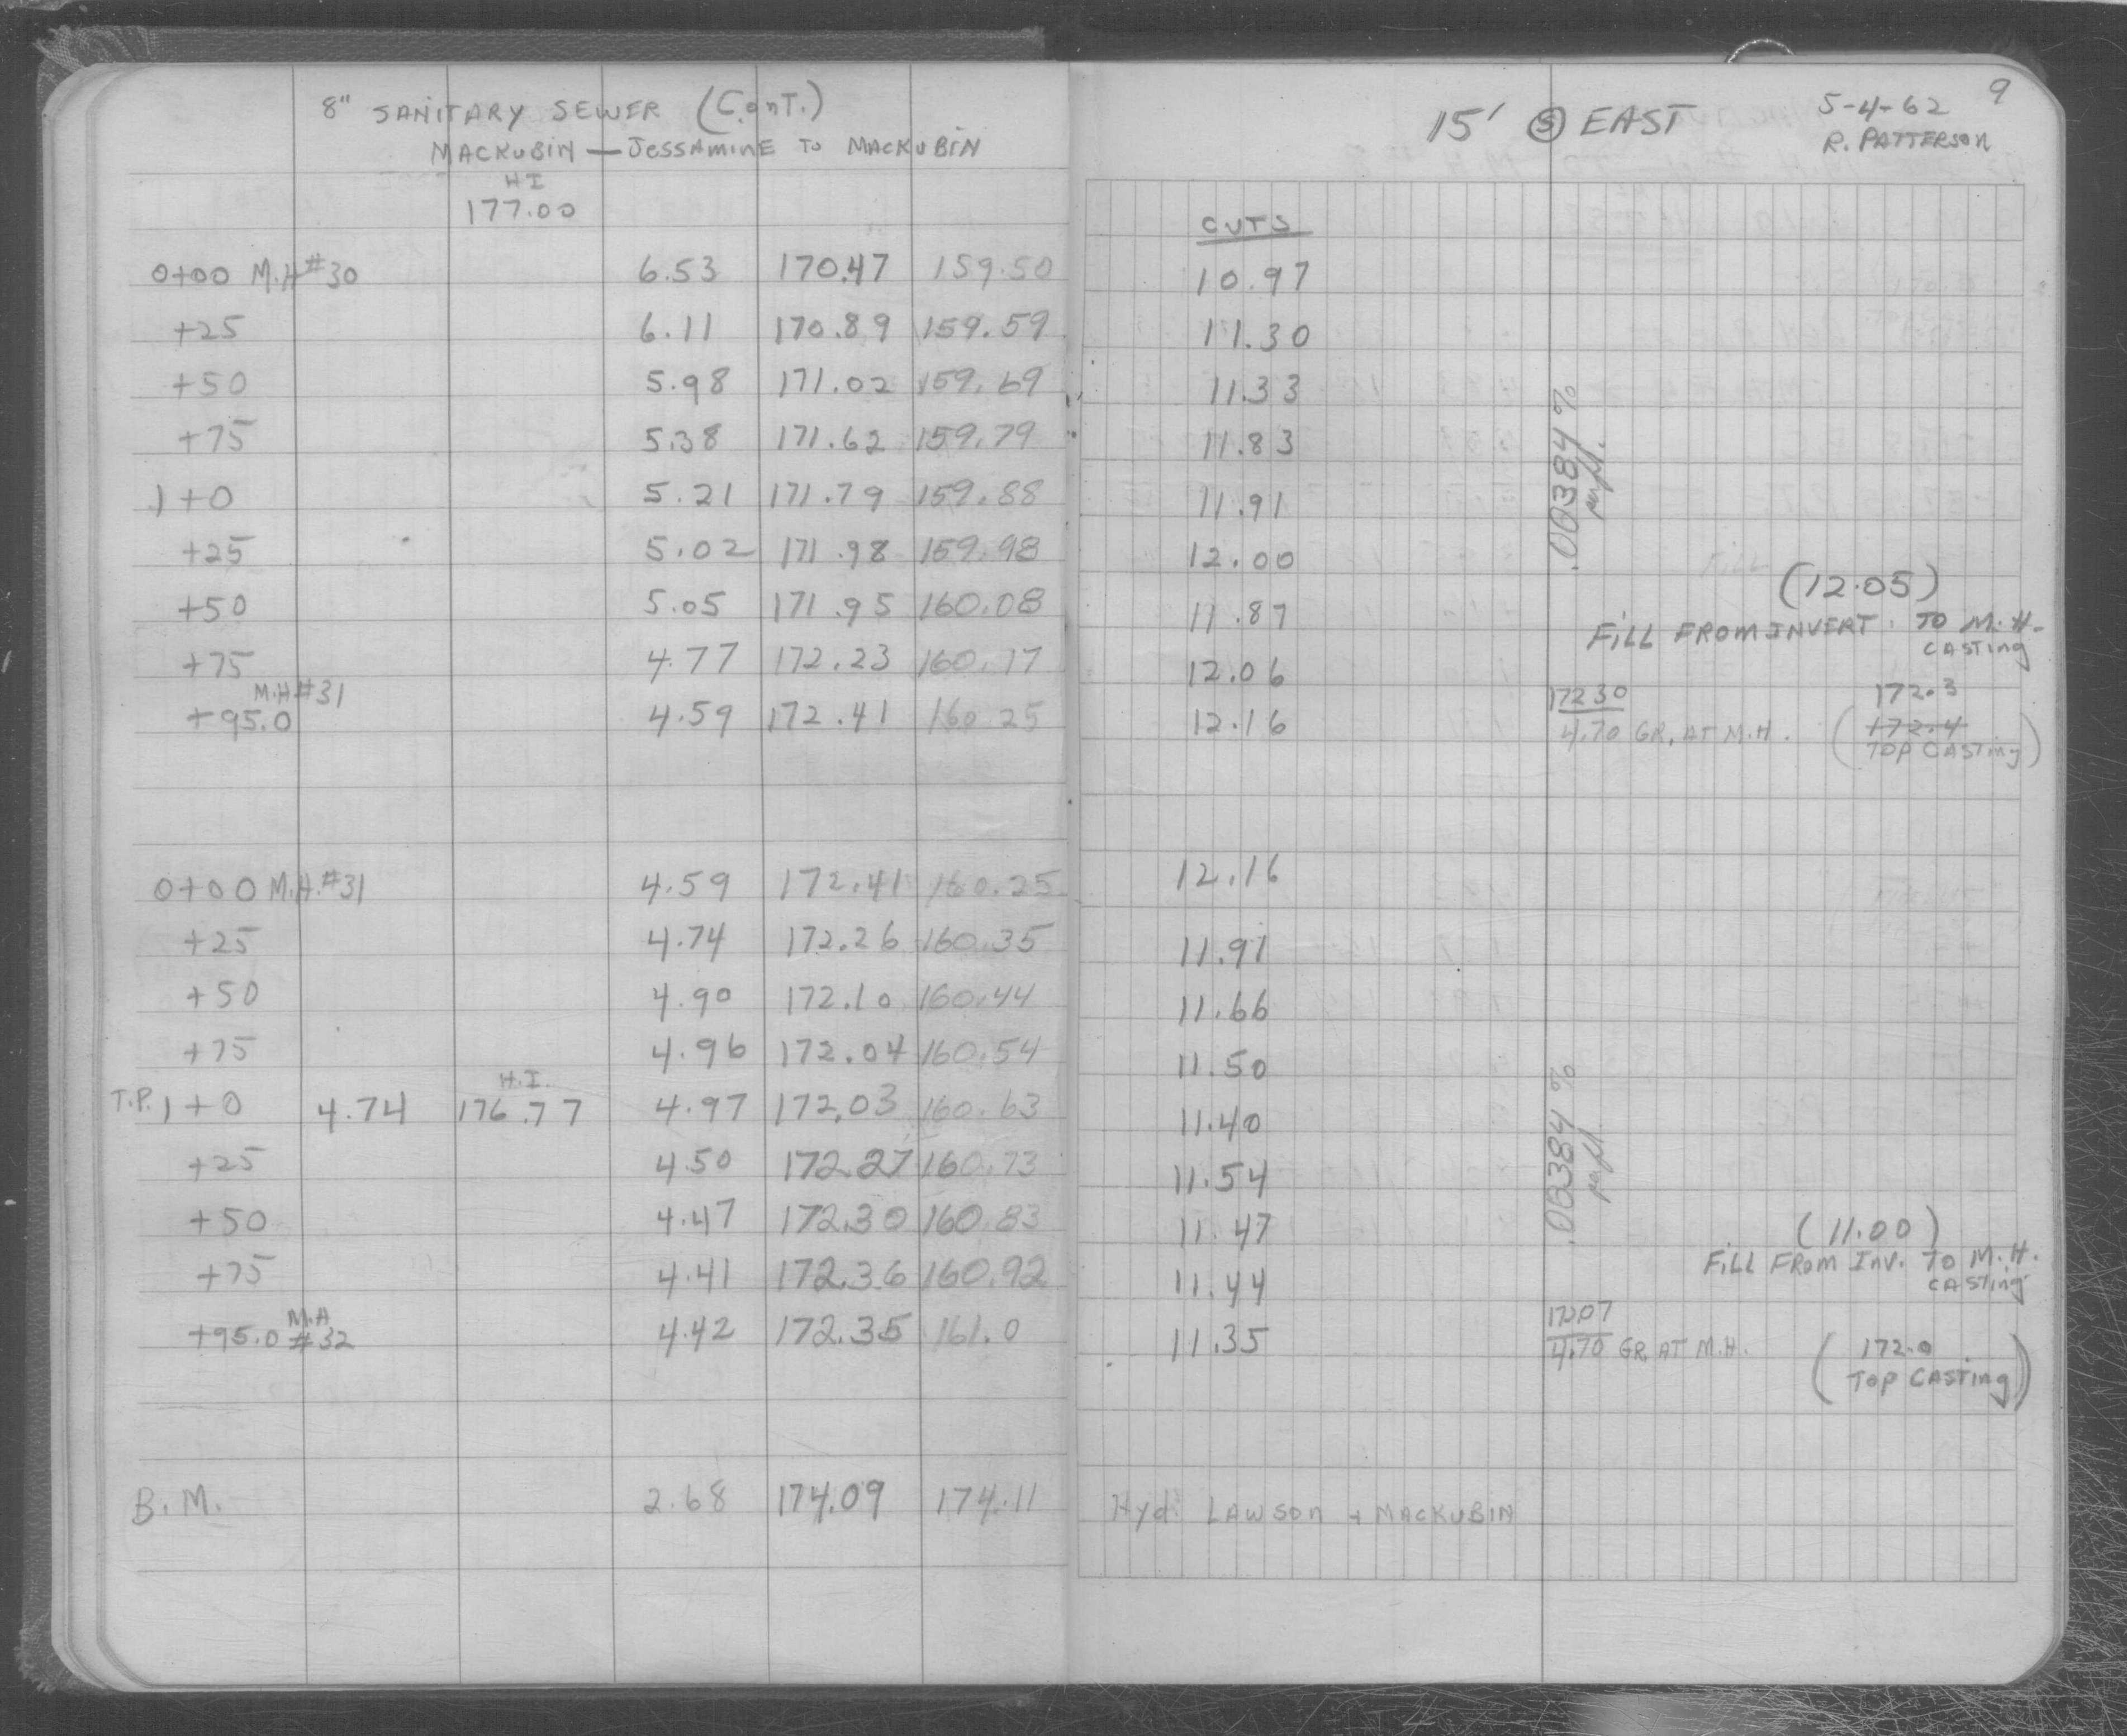 8" SANITARY SEWER (Cont.)
MACKUBIN — JESSAMINE TO MACKUBIN
HI
177.00
0+00 M.H #30 6.53 170.47 159.50
+25 6.11 170.89 159.59
+50 5.98 171.02 159.69
+75 5.38 171.62 159.79
1+0 5.21 171.79 159.88
+25 5.02 171.98 159.98
+50 5.05 171.95 160.08
+75 4.77 172.23 160.17
M.H #31
+95.0 4.59 172.41 160.25
0+00 M.H. #31 4.59 172.41 160.25
+25 4.74 172.26 160.35
+50 4.90 172.10 160.44
+75 4.96 172.04 160.54
H.I.
T.P. 1+0 4.74 176.77 4.97 172.03 160.63
+25 4.50 172.27 160.73
+50 4.47 172.30 160.83
+75 4.41 172.36 160.92
M.H
+95.0 #32 4.42 172.35 161.0
B.M. 2.68 174.09 174.11
9
5-4-62
15' Ⓢ EAST
R. PATTERSON
CUTS
10.97
11.30
11.33
11.83
11.91
12.00
11.87
12.06
12.16
.00384 %
per ft.
(12.05)
FILL FROM INVERT TO M.H.
CASTING
172.30
4.70 GR. AT M.H.
172.3
(172.4
TOP CASTING)
12.16
11.91
11.66
11.50
11.40
11.54
11.47
11.44
11.35
.00384 %
per ft.
(11.00)
FILL FROM INV. TO M.H.
CASTING
4.70 GR. AT M.H.
(172.0
TOP CASTING)
Hyd. LAWSON + MACKUBIN